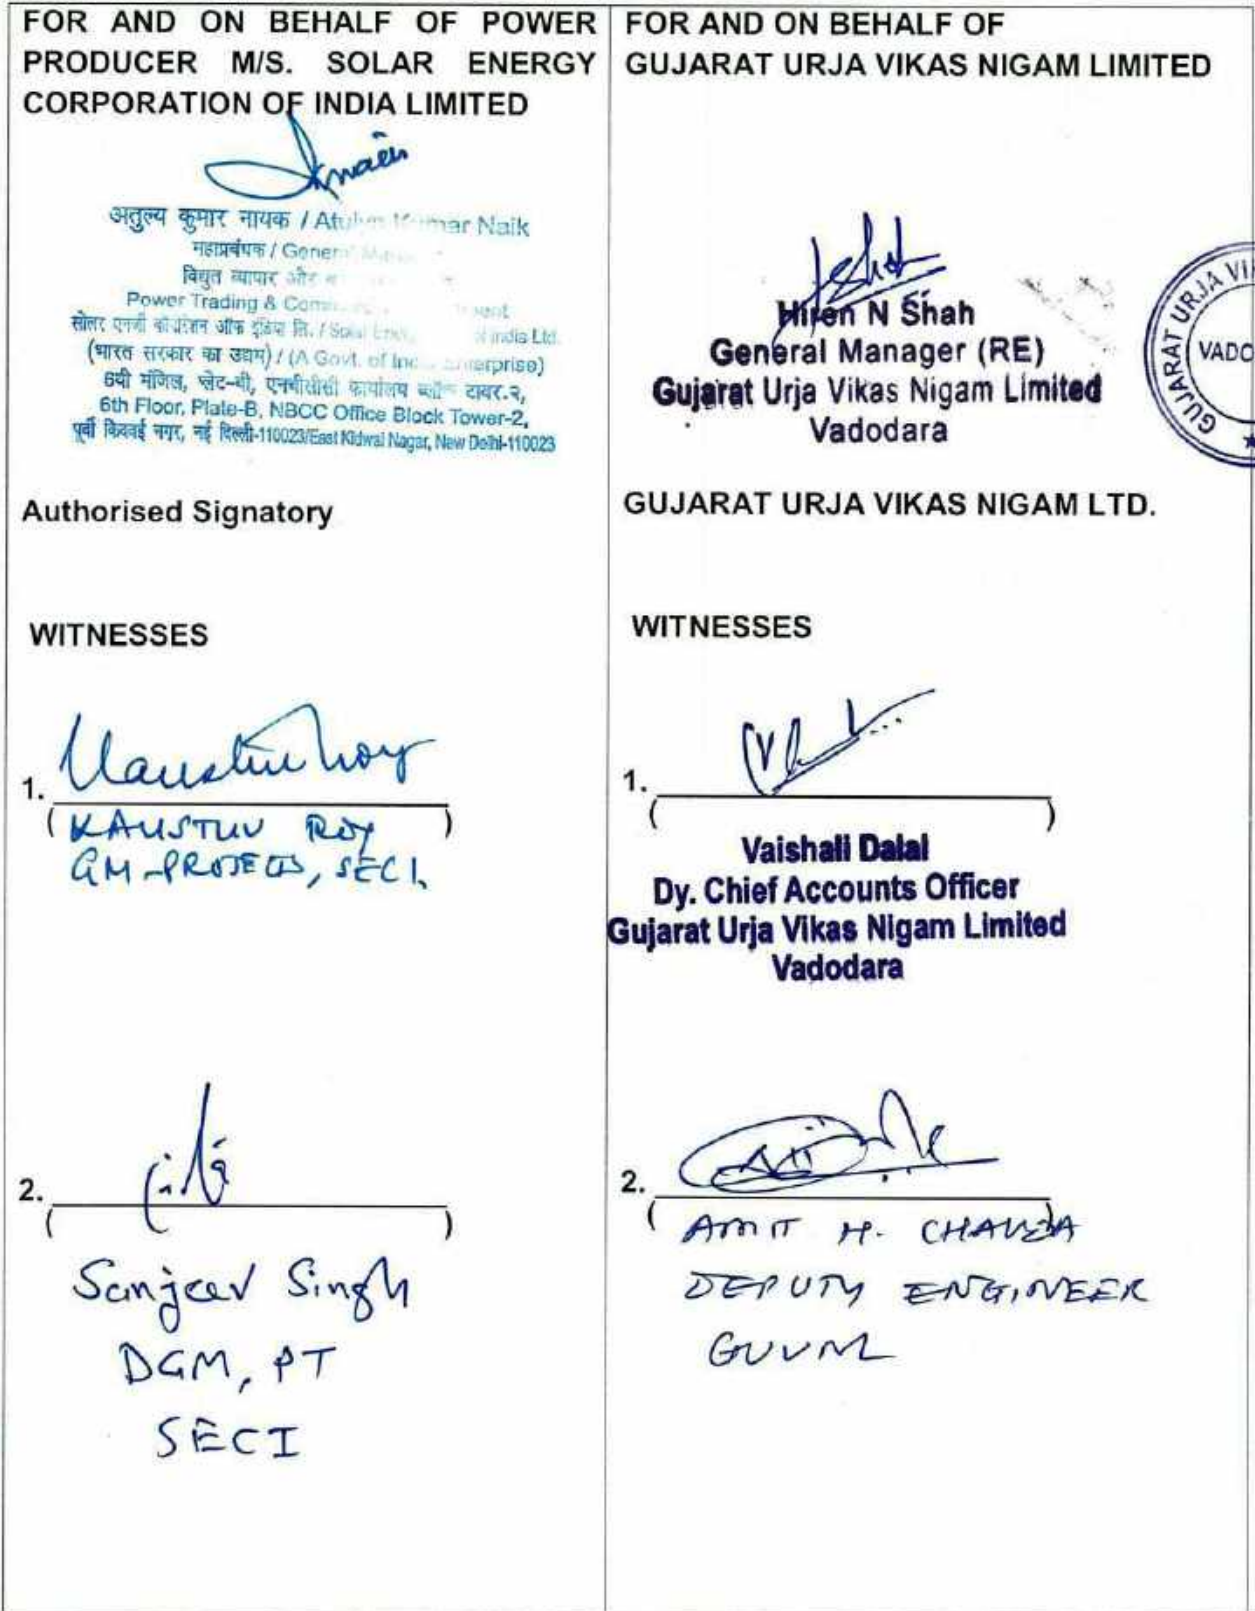 FOR AND ON BEHALF OF POWER
PRODUCER M/S. SOLAR ENERGY
CORPORATION OF INDIA LIMITED
अतुल्य कुमार नायक / Atulya Kumar Naik
महाप्रबंधक / General
विद्युत व्यापार और
Power Trading &
सोलर एनर्जी कॉर्पोरेशन ऑफ इंडिया लि. / Solar of India Ltd.
(भारत सरकार का उद्यम) / (A Govt. of India Enterprise)
6वी मंजिल, प्लेट-बी, एनबीसीसी कार्यालय ब्लॉक टावर-२,
6th Floor, Plate-B, NBCC Office Block Tower-2,
पूर्वी किदवई नगर, नई दिल्ली-110023/East Kidwai Nagar, New Delhi-110023
Authorised Signatory
WITNESSES
1. Kaustuv Roy
( KAUSTUV ROY )
GM-PROJECTS, SECI.
2.
( )
Sanjeev Singh
DGM, PT
SECI
FOR AND ON BEHALF OF
GUJARAT URJA VIKAS NIGAM LIMITED
Hiren N Shah
General Manager (RE)
Gujarat Urja Vikas Nigam Limited
Vadodara
GUJARAT URJA VI
VADO
GUJARAT URJA VIKAS NIGAM LTD.
WITNESSES
1.
( )
Vaishali Dalal
Dy. Chief Accounts Officer
Gujarat Urja Vikas Nigam Limited
Vadodara
2.
( AMIT H. CHAVDA )
DEPUTY ENGINEER
GUVNL